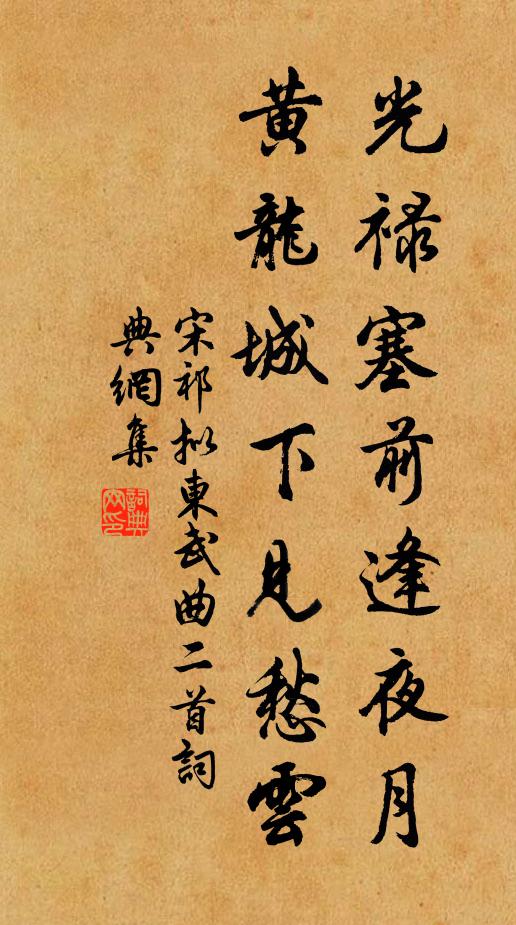 光祿塞前逢夜月
黃龍城下見愁雲
宋祁擬東武曲二首詞
典網集
詞典網印